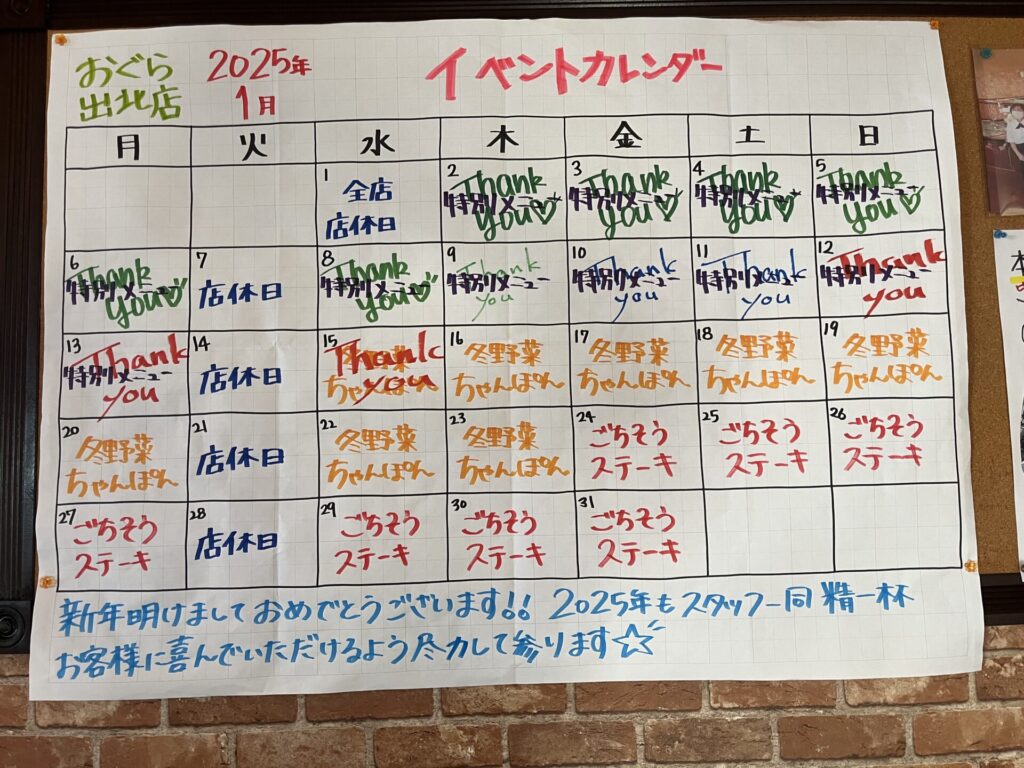 おぐら 2025年 イベントカレンダー
出北店 1月
月 火 水 木 金 土 日
1 2 3 4 5
全店 特別メニュー Thank 特別メニュー Thank 特別メニュー Thank 特別メニュー Thank
店休日 you♡ you♡ you♡ you♡
6 7 8 9 10 11 12
特別メニュー Thank 店休日 特別メニュー Thank 特別メニュー Thank 特別メニュー Thank 特別メニュー Thank 特別メニュー Thank
you♡ you♡ you you you you
13 14 15 16 17 18 19
特別メニュー Thank 店休日 冬野菜 Thank 冬野菜 冬野菜 冬野菜 冬野菜
you ちゃんぽん you ちゃんぽん ちゃんぽん ちゃんぽん ちゃんぽん
20 21 22 23 24 25 26
冬野菜 店休日 冬野菜 冬野菜 ごちそう ごちそう ごちそう
ちゃんぽん ちゃんぽん ちゃんぽん ステーキ ステーキ ステーキ
27 28 29 30 31
ごちそう 店休日 ごちそう ごちそう ごちそう
ステーキ ステーキ ステーキ ステーキ
新年明けまして おめでとうございます!! 2025年もスタッフ一同 精一杯
お客様に喜んでいただけるよう尽力して参ります☆